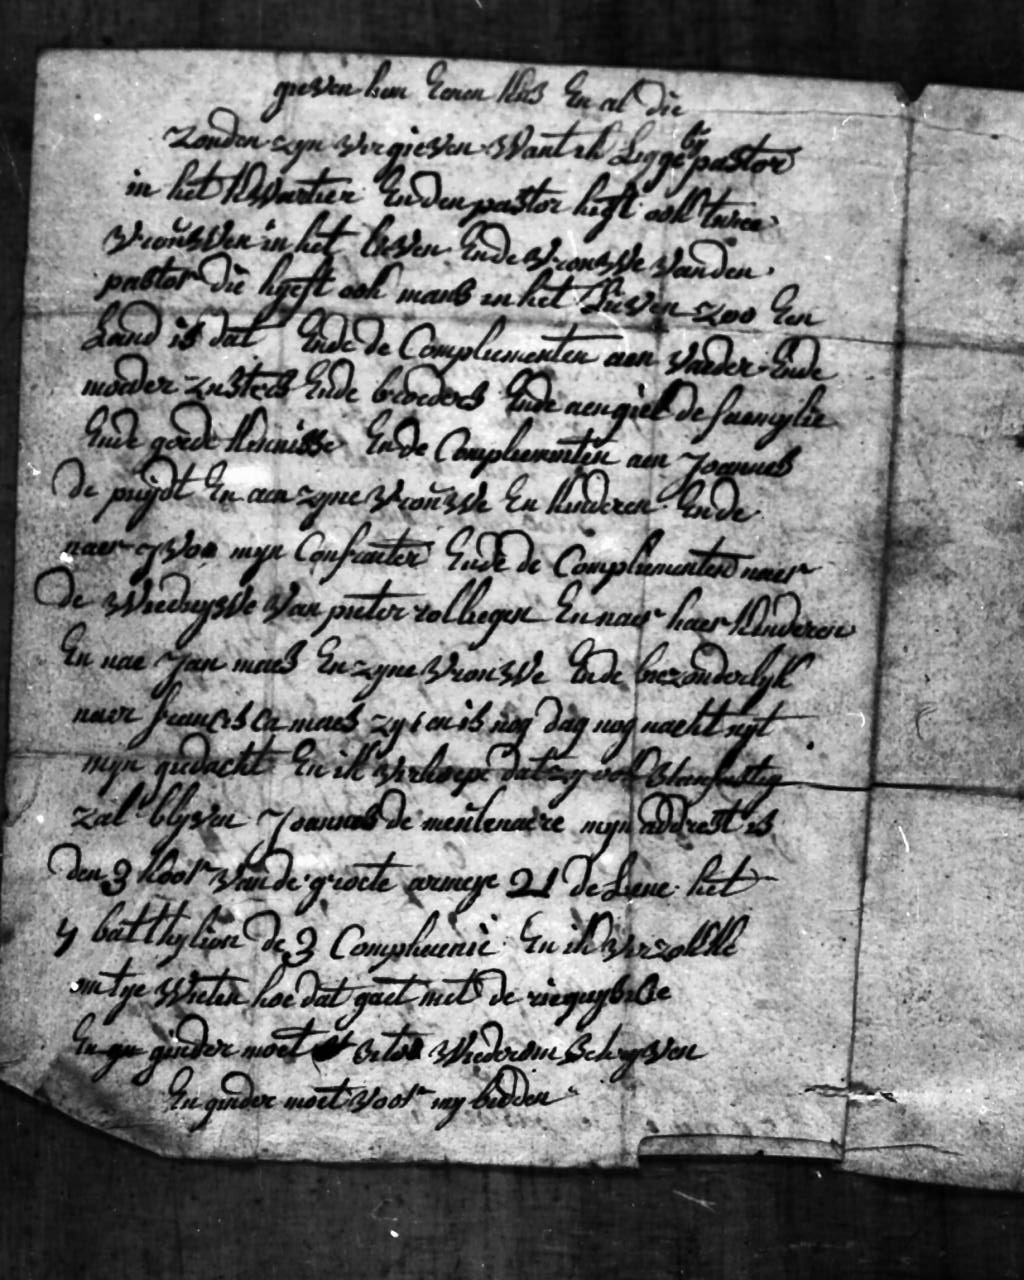 gieven hun Eenen kus En al die
zonden zyn vergieven Want ik Legge by pastor
in het kWartier Enden pastor heeft ook twee
vrouWen in het leven Ende vrouWe vanden
pastor die heeft ook mans in het Lieven zoo Een
Land is dat Ende de Complementen aen vaeder Ende
moeder zusters Ende broeders Ende aen giel de faemylie
Ende goede kennisse Ende Complementen aen Joannes
De puijdt En aen zyne vrouWe En kinderen Ende
naer yvoo mijn Confrater Ende de Complementen naer
De WieduyWe van pieter rolliegen En naer haer kinderen
En nae Jan maes En zyne vrouWe Ende biezonderlyk
naer francis ca maes zy en is nog dag nog nacht uyt
myn gedacht En ik verhoepe dat zy vol
zal blyven Joannes de meulenaere myn addrest is
den 3 koor van de groote armeye 21 de Liene het
4 batthylion de 3 Comphaenie En ik verzokke
om tye Wieten hoe dat gaet met de
En gy ginder moet Wiederom schryven
En ginder moet voor my bidden